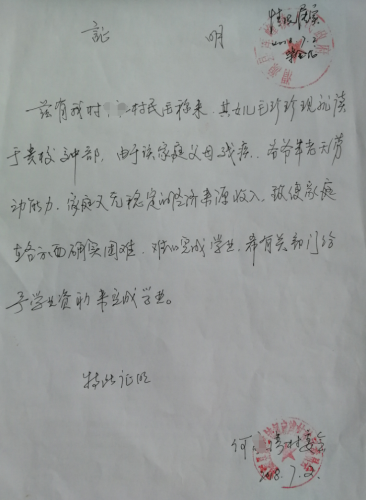 证 明
情况属实
2018.7.2
兹有我村村民毛称来,其女儿毛珍珍现就读
于贵校高中部,由于该家庭父母残疾,爷爷年老无劳
动能力,家庭又无稳定的经济来源收入,致使家庭
在各方面确实困难,难以完成学业,希有关部门给
予学业资助来完成学业。
特此证明
何 村委会
2018.7.2.